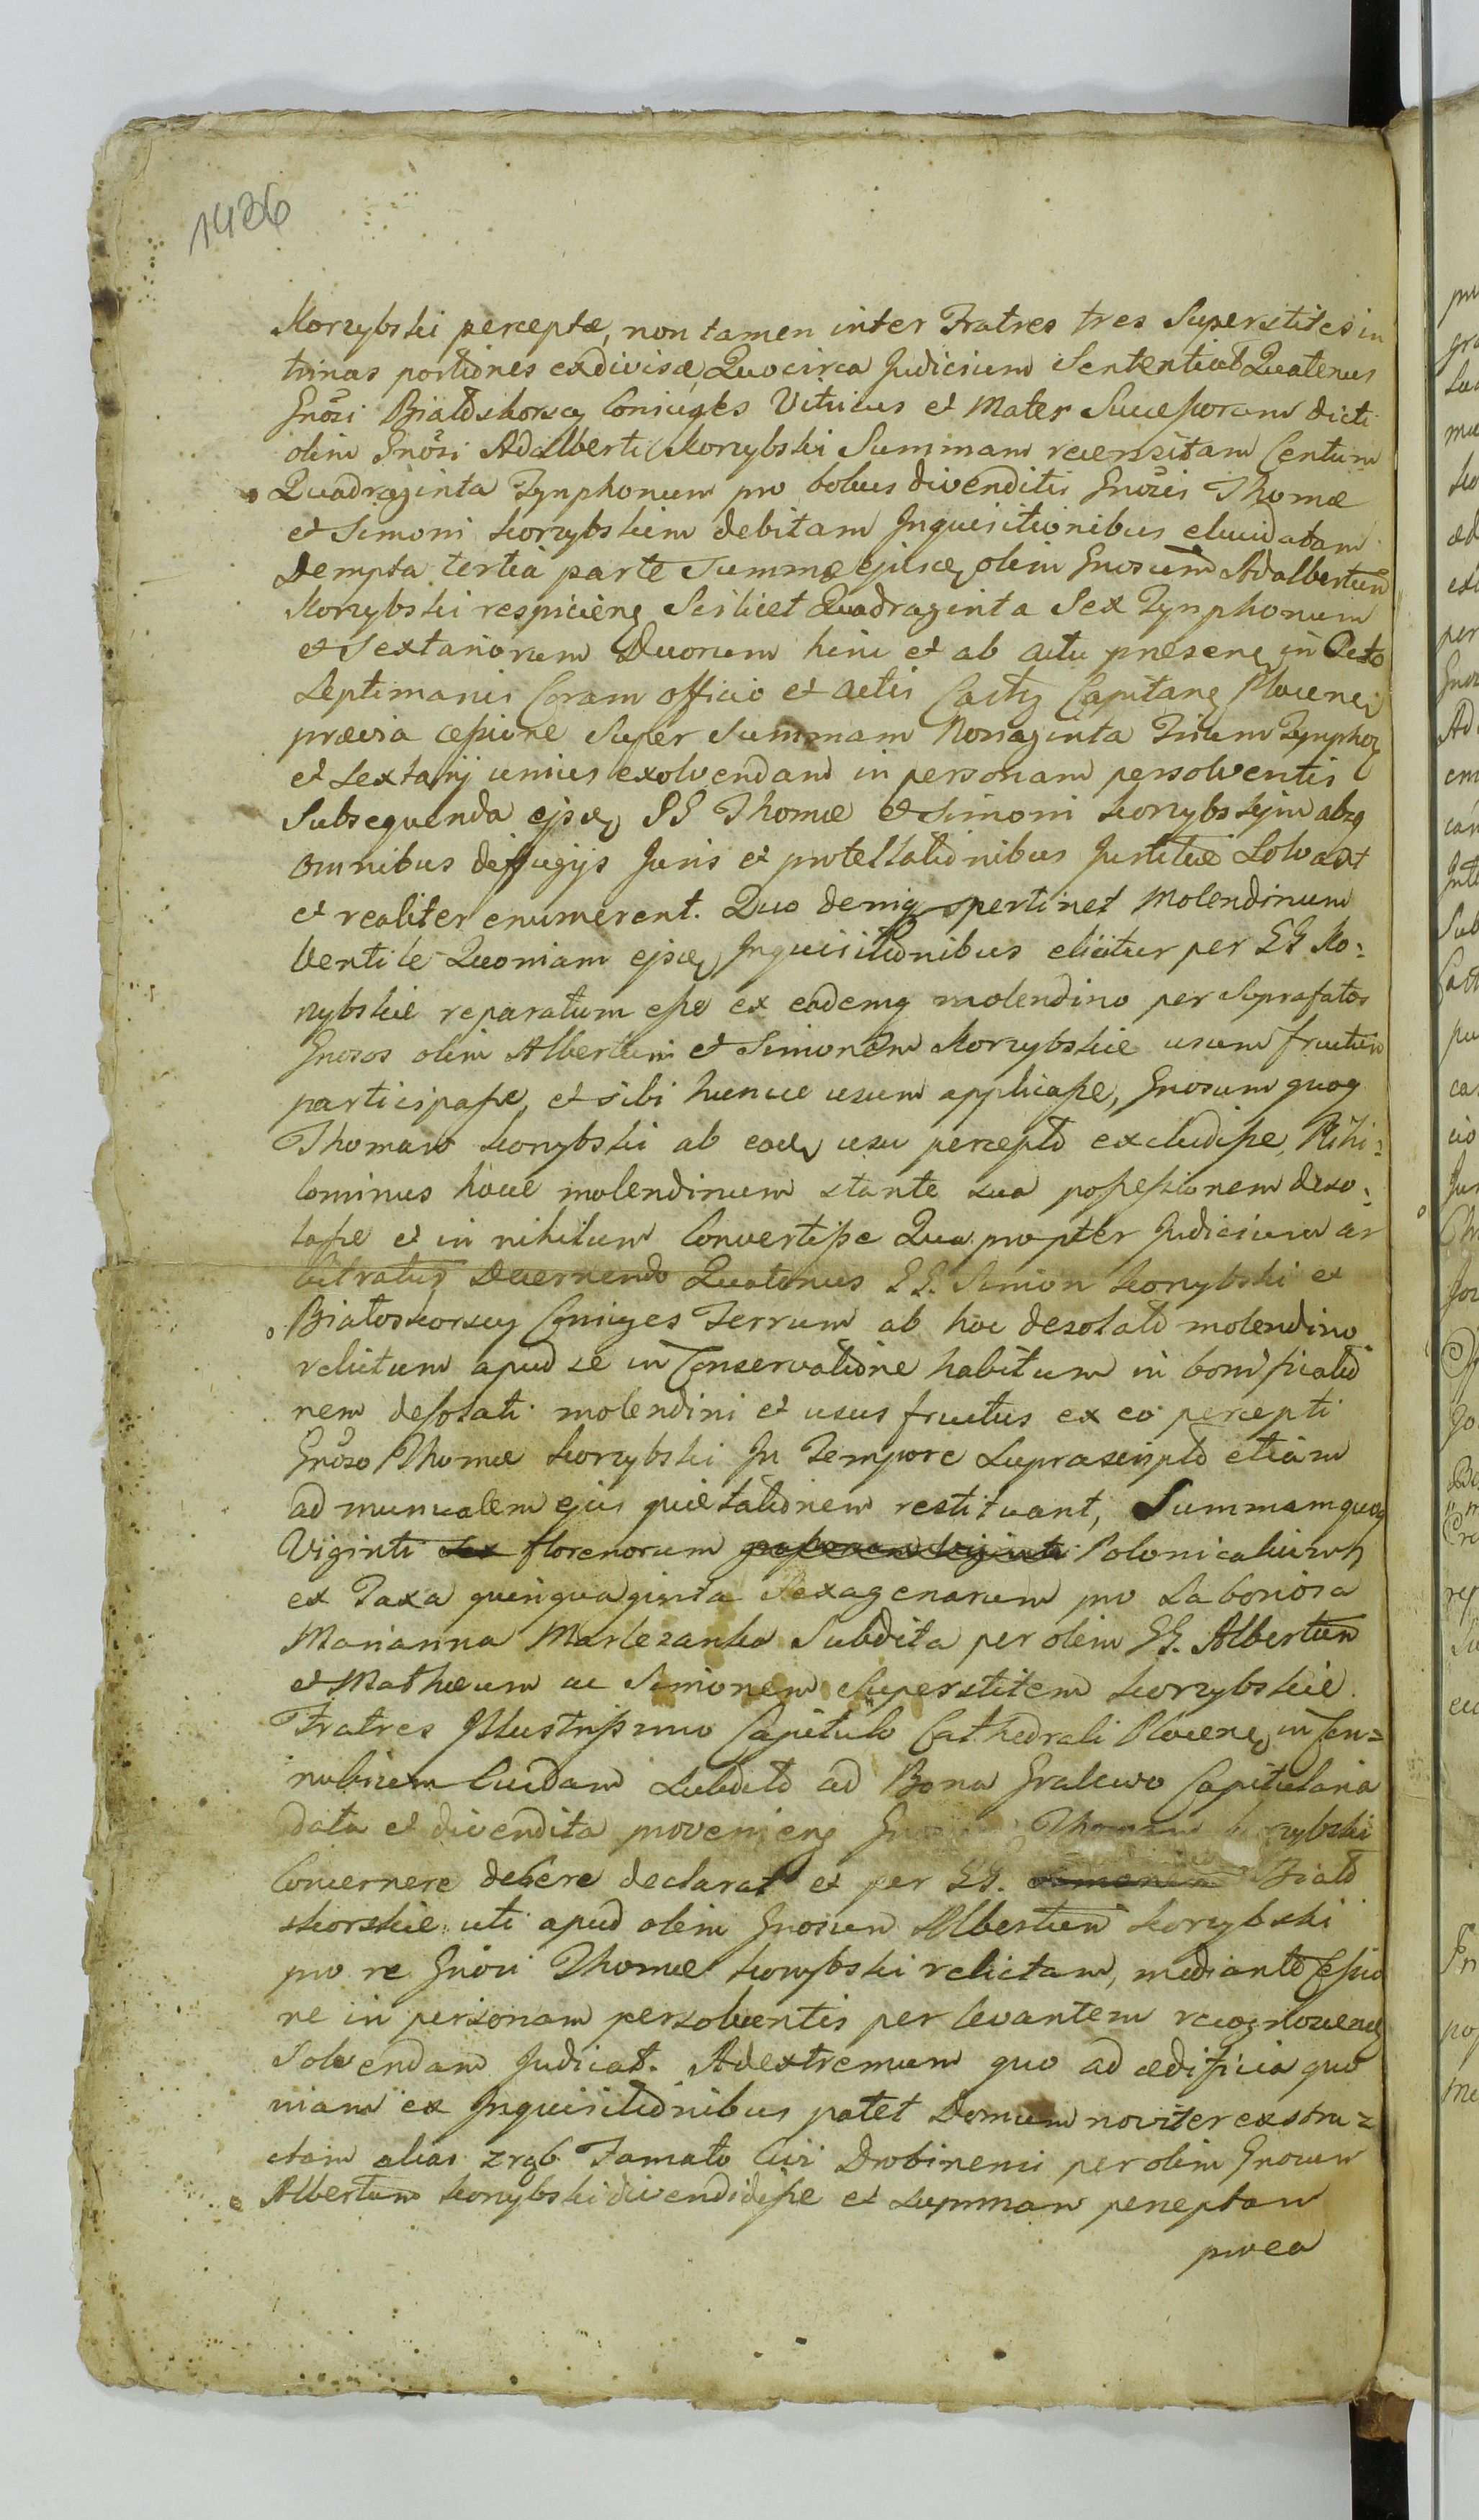 1426
Korzybski perceptæ, non tamen inter Fratres tres Superstites in
trinas portiones exdivisæ, Quocirca Judicium Sententiat Quatenus
Gnõsi Białoskorscy Coniuges Vitricus et Mater Succeßorum dicti
olim Gnõsi Adalberti Korzybski Summam recensitam Centum
Quadraginta Tynphonum pro bobus divenditis Gnõsis Thomæ
et Simoni Korzybskim debitam Inquisitionibus elucidatam
Dempta tertia parte Summæ ejusdę olim Gnosum Adalbertum
Korzybski respiciens Scilicet Quadraginta Sex Tynphonum
et Sextanorum Duorum hinc et ab actu præsenę in Octo
Septimanis Coram officio et actis Castrę Capitanę Plocenę
prævia ceßione Super Summam Nonaginta Trium Tynphoę
et Sextarij unius exolvendam in personam persolventis
Subsequenda ejsdę GG Thomæ et Simoni Korzybskim absq
omnibus deffugijs Juris et protestationibus Justitiæ Solvant
et realiter enumerent. Quo deniq pertinet Molendinum
Ventile Quoniam ejsdę Inquisitionibus elicitur per GG Ko:
rzybskie reparatum eße ex eodemq molendino per Suprafatos
Gnosos olim Albertum et Simonem Korzybskie usum fructum
participaße, et sibi hunce usum applicaße, Gnosum quoq
Thomam Korzybski ab eodę usu percepto excludiße, Nihi:
lominus hocce molendinum stante sua poßeßionem deso:
laße et in nihilum Convertiße Qua propter Judicium ar
bitratur Decernendo Quatenus GG. Simon Korzybski et
Białoskorscy Coniuges Ferrum ab hoc desolato molendino
relictum apud se in Conservatione habitum in bonificatio
nem desolati molendini et usus fructus ex eo percepti
Gnõso Thomæ Korzybski In Tempore Suprascripto etiam
ad manualem ejus quietationem restituant, Summam quoq
Viginti florenorum Polonicalium
ex Taxa quinquaginta Sexagenarum pro Laboriosa
Marianna Marlezanka Subdita per olim GG. Albertum
et Mathæum ac Simonem Superstitem Korzybskie
Fratres Illustrißimo Capitulo Cathedrali Plocenę in Con=
nubium Cuidam Subdito ad Bona Gralewo Capitularia
data et divendita provenienę Thomam Korzybski
Concernere debere declarat et per GG. Biało
skorskie uti apud olim Gnosum Albertum Korzybski
pro re Gnõsi Thomæ Korzybski relictam, mediante Ceßio
ne in personam persolventis per levantem recognoscendę
Solvendam Judicat. Ad extremum quo ad ædificia quo
niam ex Inquisitionibus patet Domum noviter exstru=
ctam alias zrąb Famato Civi Drobinensi per olim Gnosum
Albertum Korzybski divendidiße et Summam perceptam
pro ea